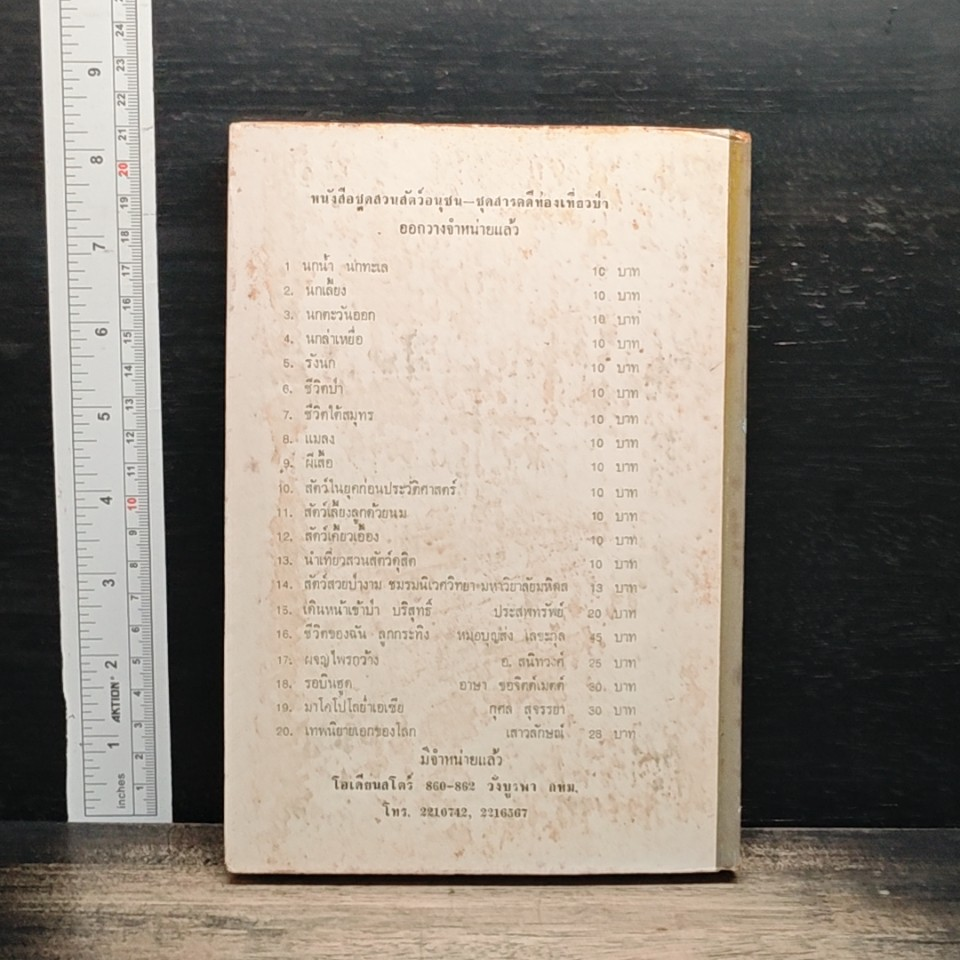 หนังสือชุดสวนสัตว์อนุชน—ชุดสารคดีท่องเที่ยวป่า
ออกวางจำหน่ายแล้ว
1 นกน้ำ นกทะเล 10 บาท
2. นกเลี้ยง 10 บาท
3. นกตะวันออก 10 บาท
4. นกล่าเหยื่อ 10 บาท
5. รังนก 10 บาท
6. ชีวิตป่า 10 บาท
7. ชีวิตใต้สมุทร 10 บาท
8. แมลง 10 บาท
9. ผีเสื้อ 10 บาท
10. สัตว์ในยุคก่อนประวัติศาสตร์ 10 บาท
11. สัตว์เลี้ยงลูกด้วยนม 10 บาท
12. สัตว์เคี้ยวเอื้อง 10 บาท
13. นำเที่ยวสวนสัตว์ดุสิต 10 บาท
14. สัตว์สวยป่างาม ชมรมนิเวศวิทยา มหาวิทยาลัยมหิดล 13 บาท
15. เดินหน้าเข้าป่า บริสุทธิ์ ประสพทรัพย์ 20 บาท
16. ชีวิตของฉัน ลูกกระทิง หมอบุญส่ง เลขะกุล 45 บาท
17. ผจญไพรกว้าง อ. สนิทวงศ์ 25 บาท
18. รอบินฮูด อาษา ขอจิตต์เมตต์ 30 บาท
19. มาโคโปโลย่ำเอเซีย กุศล สุจรรยา 30 บาท
20. เทพนิยายเอกของโลก เสาวลักษณ์ 28 บาท
มีจำหน่ายแล้ว
โอเดียนสโตร์ 860-862 วังบูรพา กทม.
โทร. 2210742, 2216567
inches
AKTION
1 2 3 4 5 6 7 8 9
1 2 3 4 5 6 7 8 9 10 11 12 13 14 15 16 17 18 19 20 21 22 23 24